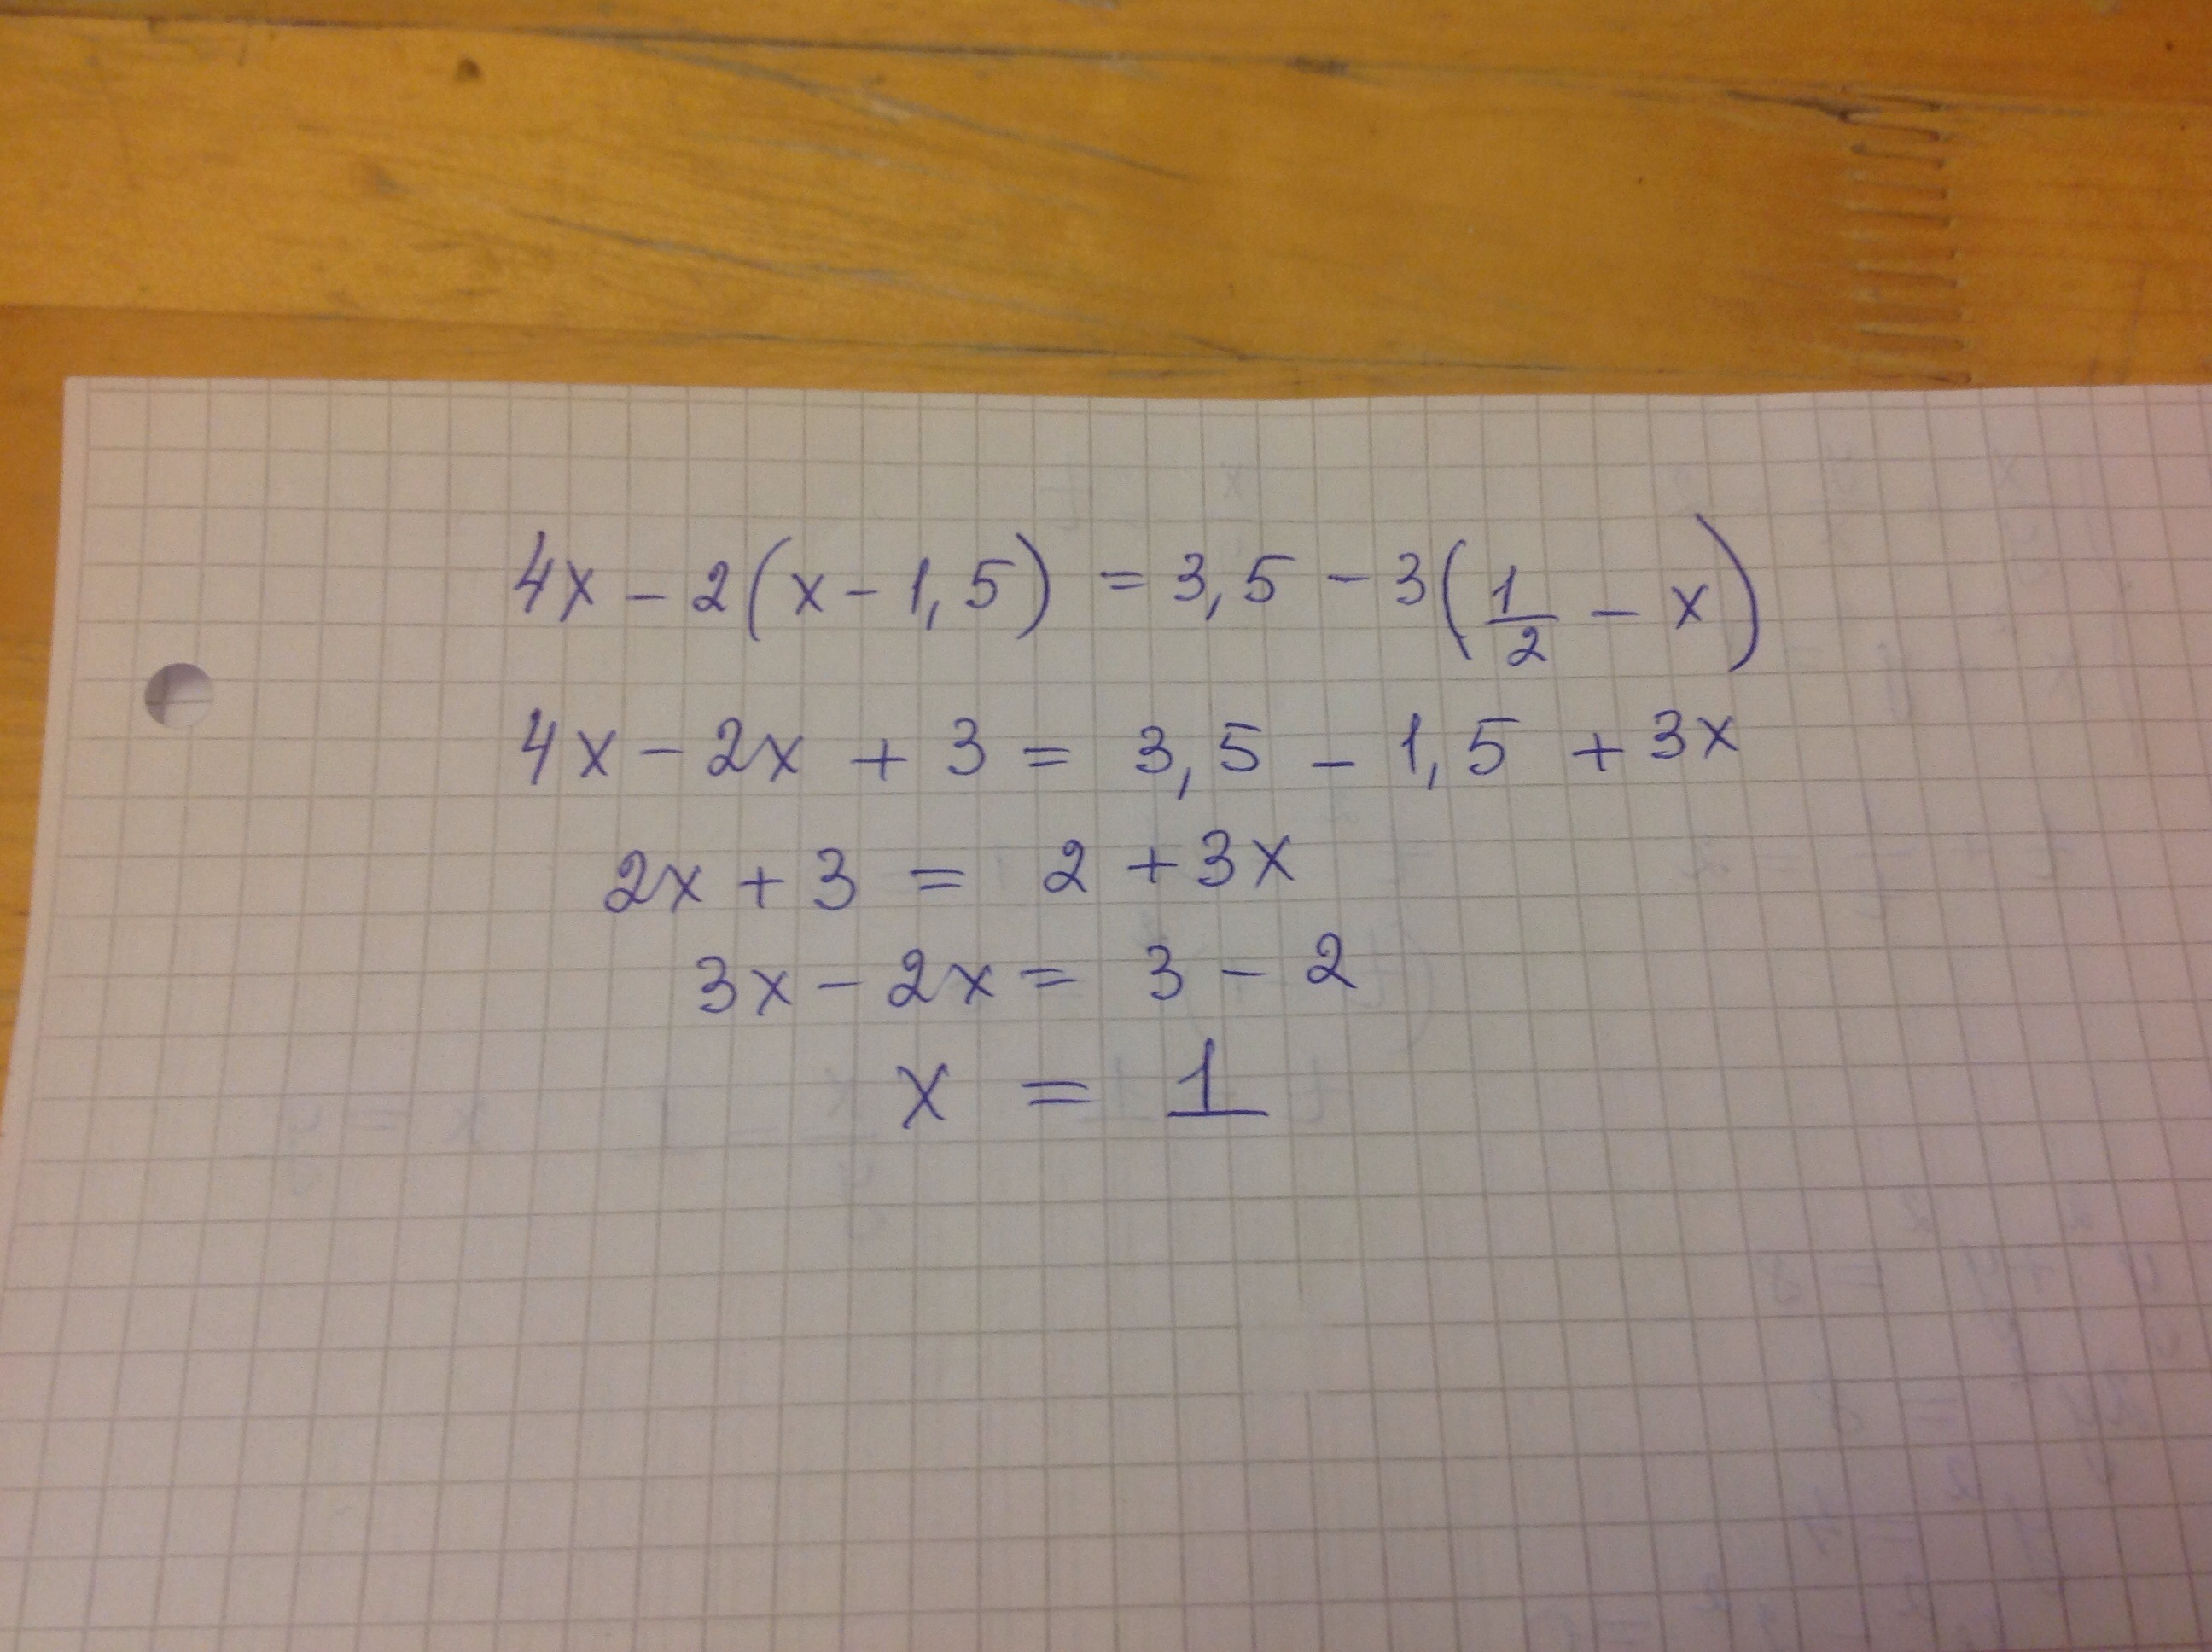 4x - 2(x - 1,5) = 3,5 - 3(1/2 - x)
4x - 2x + 3 = 3,5 - 1,5 + 3x
2x + 3 = 2 + 3x
3x - 2x = 3 - 2
x = 1